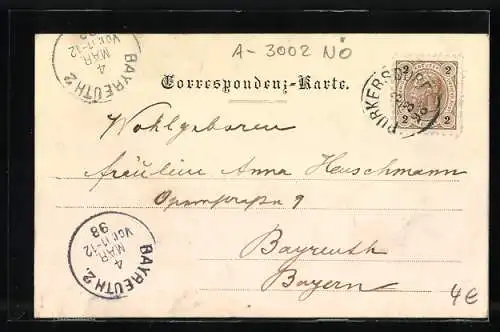 A-3002 NÖ
BAYREUTH 2
4
MAR
VOR 11-12
98
Correspondenz-Karte.
2 2
PURKERSDORF
2 2
Wohlgeboren
Fräulein Anna Heuschmann
Opernstraße 9
Bayreuth
Bayern
BAYREUTH 2
4
MAR
VOR 11-12
98
4€